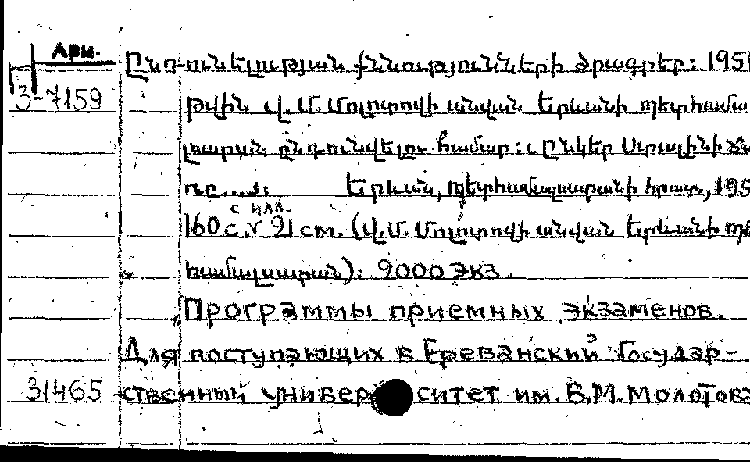 Арм.
Ընդունելության քննությունների ծրագրեր: 195
3-7159 թվին Վ. Մ. Մոլոտովի անվան Երևանի պետհամա
լսարան ընդունվելու համար:
Երևան, պետհամալսարանի հրատ., 195
с илл.
160 с. 21 см. (Վ. Մ. Մոլոտովի անվան Երևանի պե
համալսարան): 9000 экз.
Программы приемных экзаменов.
Для поступающих в Ереванский Государ-
31465 ственный университет им. В.М. Молотова